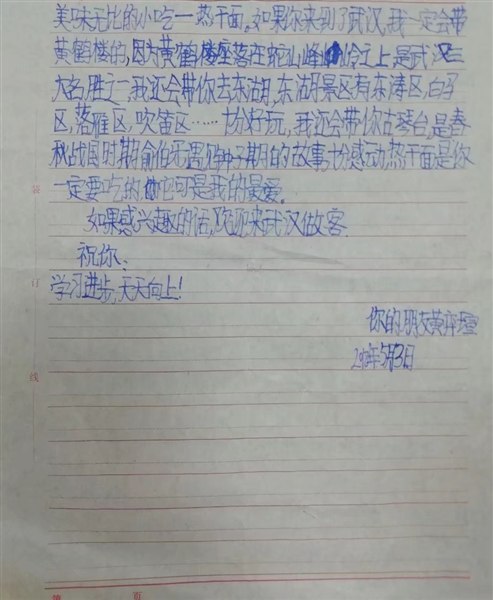 美味无比的小吃一热干面。如果你来到了武汉,我一定会带
黄鹤楼的,因为黄鹤楼座落在蛇山峰岭之上是武汉三
大名胜之一,我还会带你去东湖,东湖景区有东涛区,白马
区,落雁区,吹笛区……十分好玩,我还会带你古琴台,是春
秋战国时期俞伯牙遇钟子期的故事,十分感动,热干面是你
一定要吃的,它可是我的最爱。
如果感兴趣的话,欢迎来武汉做客.
祝你:
学习进步,天天向上!
你的朋友黄
年5月3日
装
订
线
第 页